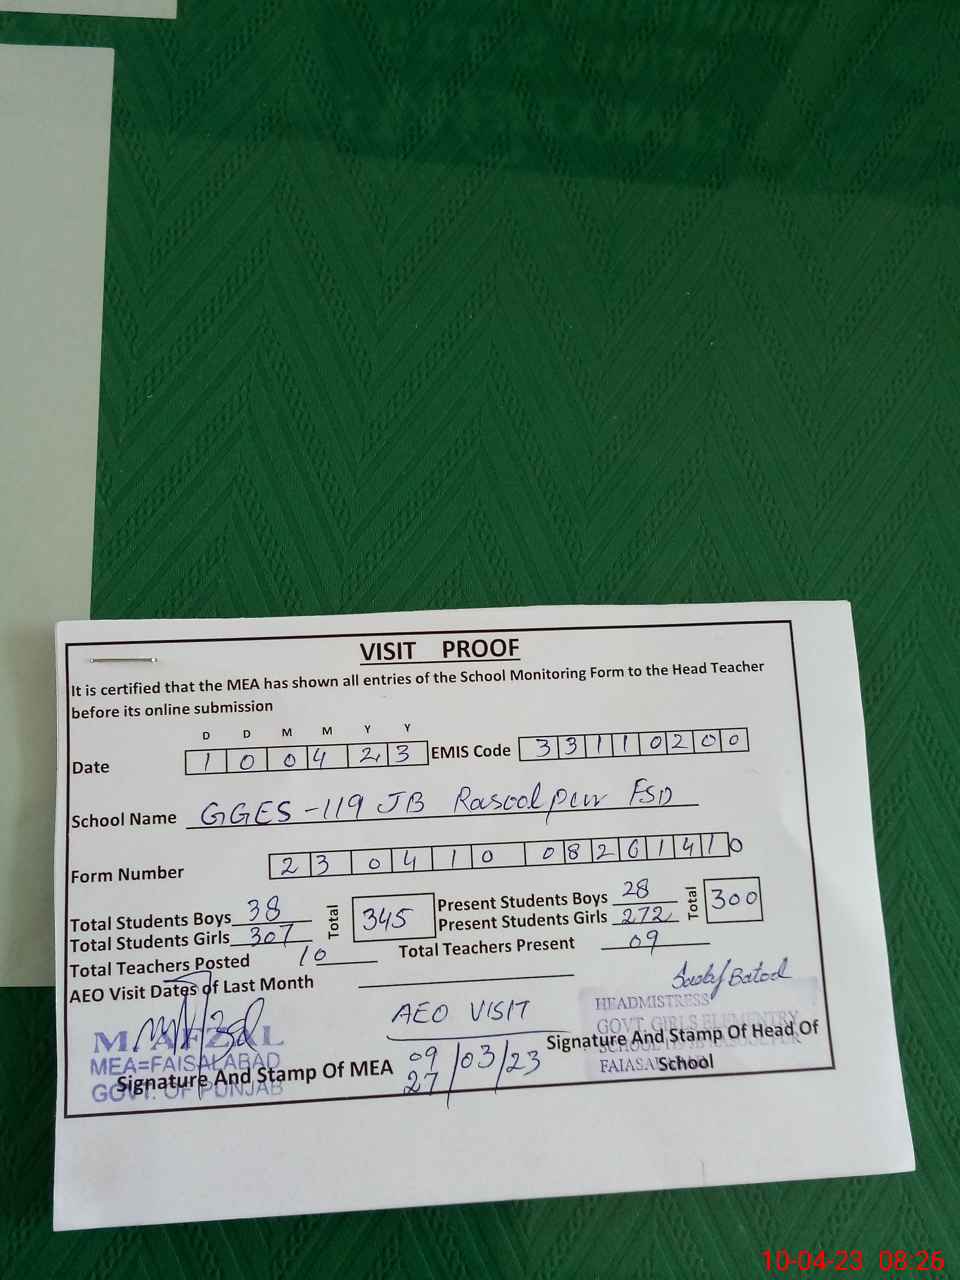 VISIT PROOF
It is certified that the MEA has shown all entries of the School Monitoring Form to the Head Teacher
before its online submission
D D M M Y Y
Date 1 0 0 4 2 3 EMIS Code 3 3 1 1 0 2 0 0
School Name GGES-119 JB Rasoolpur FSD
Form Number 2 3 0 4 1 0 0 8 2 6 1 4 1 0
Total Students Boys 38 Total 345 Present Students Boys 28 Total 300
Total Students Girls 307 Present Students Girls 272
Total Teachers Posted 10 Total Teachers Present 09
AEO Visit Dates of Last Month
AEO VISIT
09/03/23
27
M. AFZAL
MEA=FAISALABAD
GOVT. OF PUNJAB
Signature And Stamp Of MEA
HEADMISTRESS
GOVT. GIRLS ELEMENTRY
Signature And Stamp Of Head Of
School
10-04-23 08:26